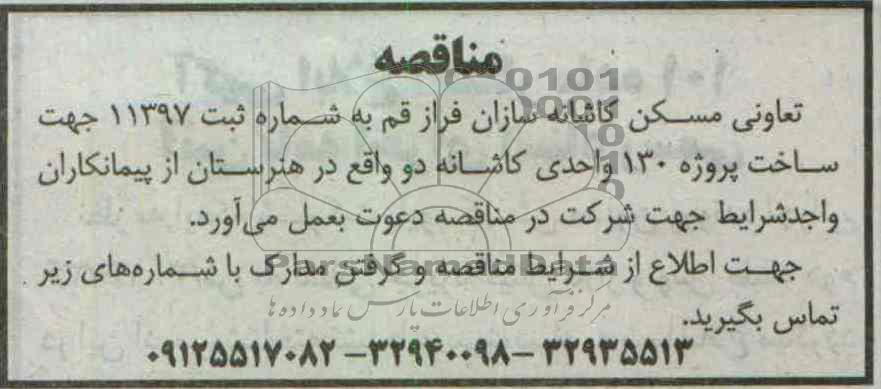 مناقصه
تعاونی مسکن کاشانه سازان فراز قم به شماره ثبت ۱۱۳۹۷ جهت
ساخت پروژه ۱۳۰ واحدی کاشانه دو واقع در هنرستان از پیمانکاران
واجدشرایط جهت شرکت در مناقصه دعوت بعمل می‌آورد.
جهت اطلاع از شرایط مناقصه و گرفتن مدارک با شماره‌های زیر
تماس بگیرید.
۳۲۹۳۵۵۱۳ –۳۲۹۴۰۰۹۸ –۰۹۱۲۵۵۱۷۰۸۲
ParsNamadData
مرکز فرآوری اطلاعات پارس نماد داده ها